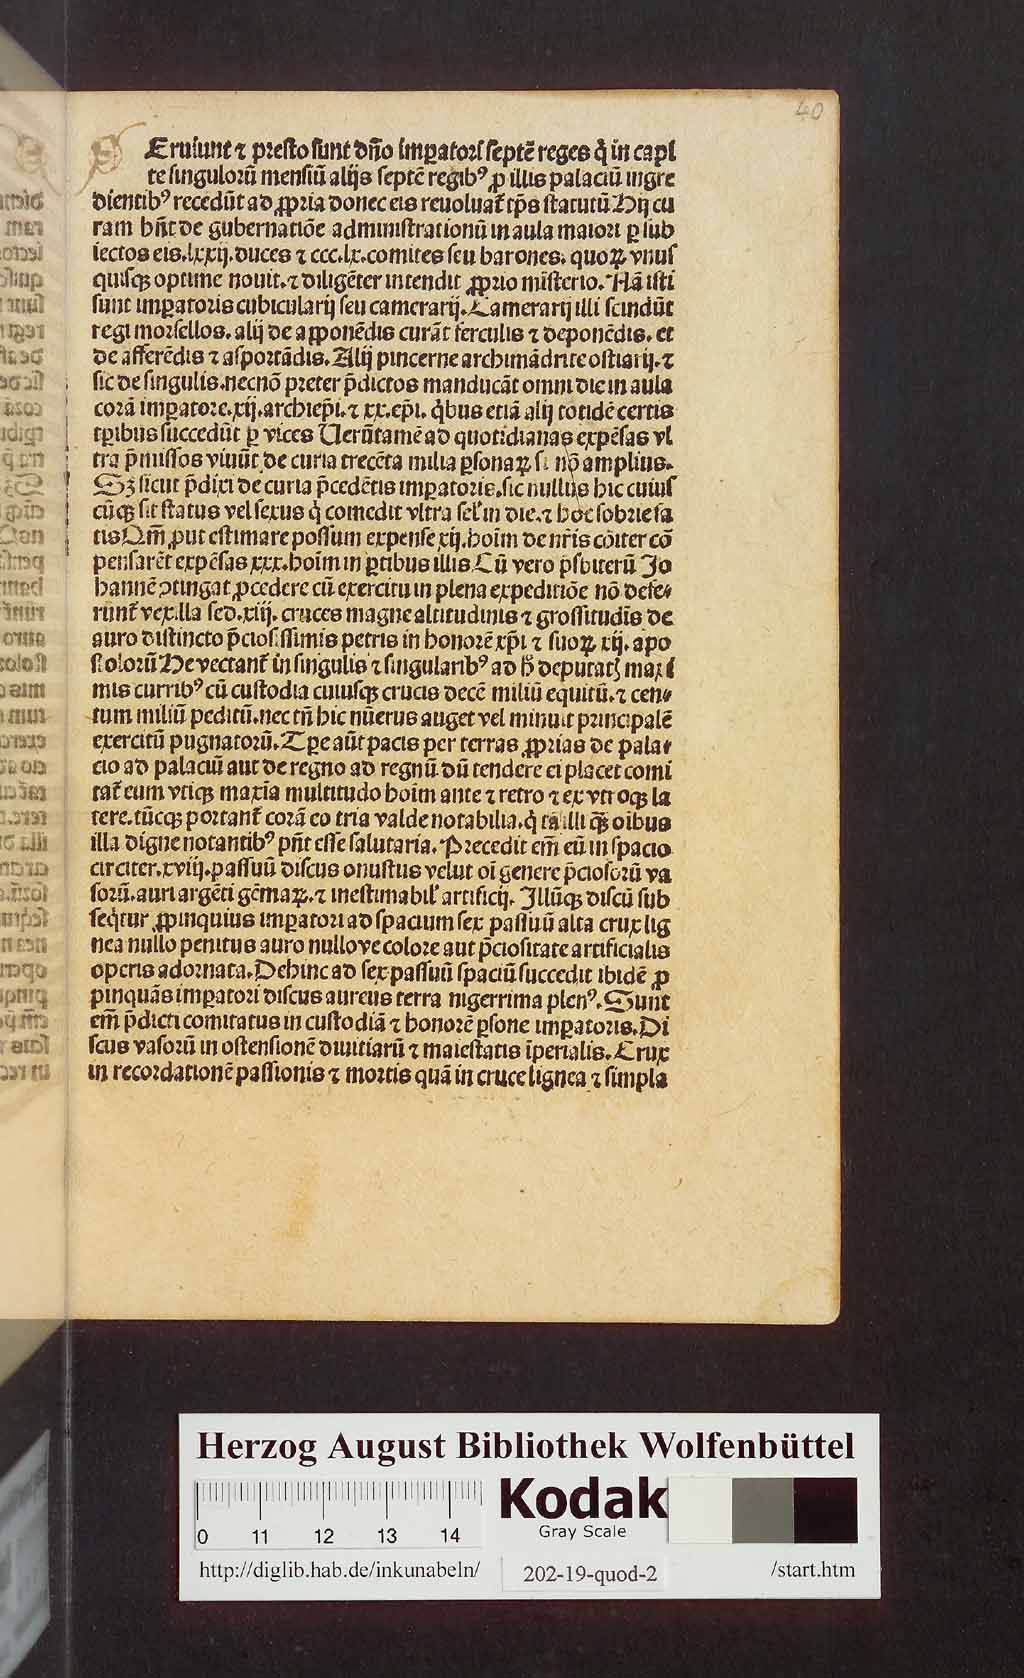 40
S Eruiunt ⁊ presto sunt dn̄o imꝑatori septē reges q̇ in capi
te singulorū mensiū alijs septē regibꝰ ꝓ illis palaciū ingre
dientibꝰ recedūt ad ꝓpria donec eis reuoluat̄ tp̄s statutū Hij cu
ram hn̄t de gubernatiōe administrationū in aula maiori ꝑ sub
iectos eis.lxxij.duces ⁊ ccc.lx.comites seu barones. quoꝝ vnus
quisqꝫ optime nouit.⁊ diligēter intendit ꝓprio misterio. Nā isti
sunt imꝑatoris cubicularij seu camerarij. Camerarij illi scindūt
regi morsellos. alij de apponēdis curāt ferculis ⁊ deponēdis. et
de afferēdis ⁊ asportādis. Alij pincerne archimādrite ostiarij.⁊
sic de singulis.necnō preter p̄dictos manducāt omni die in aula
corā imꝑatore.xij.archiepī.⁊ xx.epī. q̇bus etiā alij totidē certis
tꝑibus succedūt ꝑ vices Uerūtamē ad quotidianas expēsas vl
tra p̄missos viuūt de curia trecēta milia ꝑsonaꝝ si nō amplius.
Sꝫ sicut p̄dixi de curia p̄cedētis imꝑatoris.sic nullus hic cuius
cūqꝫ sit status vel sexus q̇ comedit vltra sel̛ in die.⁊ hoc sobrie sa
tis Qm̄ ꝓut estimare possum expense xij.hoim̄ de nr̄is cōiter cō
pensarēt expēsas xxx.hoim̄ in ꝑtibus illis. Cū vero p̄sbiterū Jo
hannē ↄtingat ꝓcedere cū exercitu in plena expeditiōe nō defe⸗
rūnt̄ vexilla sed.xiij. cruces magne altitudinis ⁊ grossitudis̄ de
auro distincto p̄ciosissimis petris in honorē xp̄i ⁊ suoꝝ xij. apo
stolorū He vectant̄ in singulis ⁊ singularibꝰ ad h̄ deputatꝭ maxi
mis curribꝰ cū custodia cuiusqꝫ crucis decē miliū equitū.⁊ cen⸗
tum miliū peditū.nec tn̄ hic nūerus auget vel minuit principalē
exercitū pugnatorū. Tꝑe aūt pacis per terras ꝓprias de pala⸗
cio ad palaciū aut de regno ad regnū dū tendere ei placet comi
tat̄ eum vtiqꝫ maxia̅ multitudo hoim̄ ante ⁊ retro ⁊ ex vtroqꝫ la
tere.tūcqꝫ portant̄ corā eo tria valde notabilia.q̇ tā illi qꝫ̄ oībus
illa digne notantibꝰ pn̄t esse salutaria. Precedit em̄ eū in spacio
circiter.xviij.passuū discus onustus velut oī genere p̄ciosorū va
sorū.auri argēti gēmaꝝ.⁊ inestimabil̛ artificij. Jllūqꝫ discū sub
seq̇tur ꝓpinquius imꝑatori ad spacium sex passuū alta crux lig
nea nullo penitus auro nullove colore aut p̄ciositate artificialis
operis adornata. Dehinc ad sex passuū spaciū succedit ibidē ꝓ
pinquās imꝑatori discus aureus terra nigerrima plenꝰ. Sunt
em̄ p̄dicti comitatus in custodiā ⁊ honorē ꝑsone imꝑatoris. Di
scus vasorū in ostensionē diuitiarū ⁊ maiestatis īperialis. Crux
in recordationē passionis ⁊ mortis quā in cruce lignea ⁊ simpla
Herzog August Bibliothek Wolfenbüttel
0 11 12 13 14
Kodak
Gray Scale
http://diglib.hab.de/inkunabeln/
202-19-quod-2
/start.htm